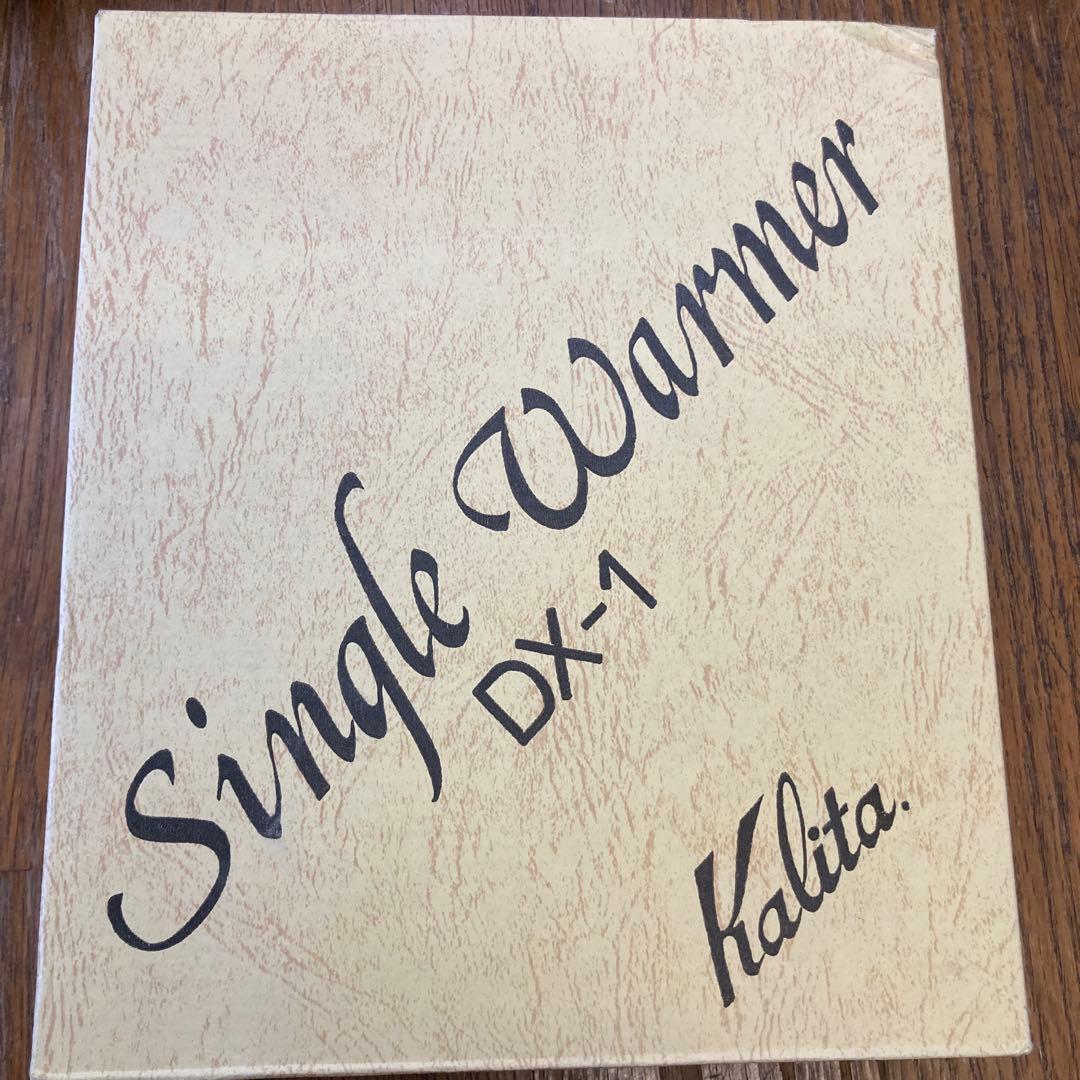 Single Warmer
DX-1
Kalita.